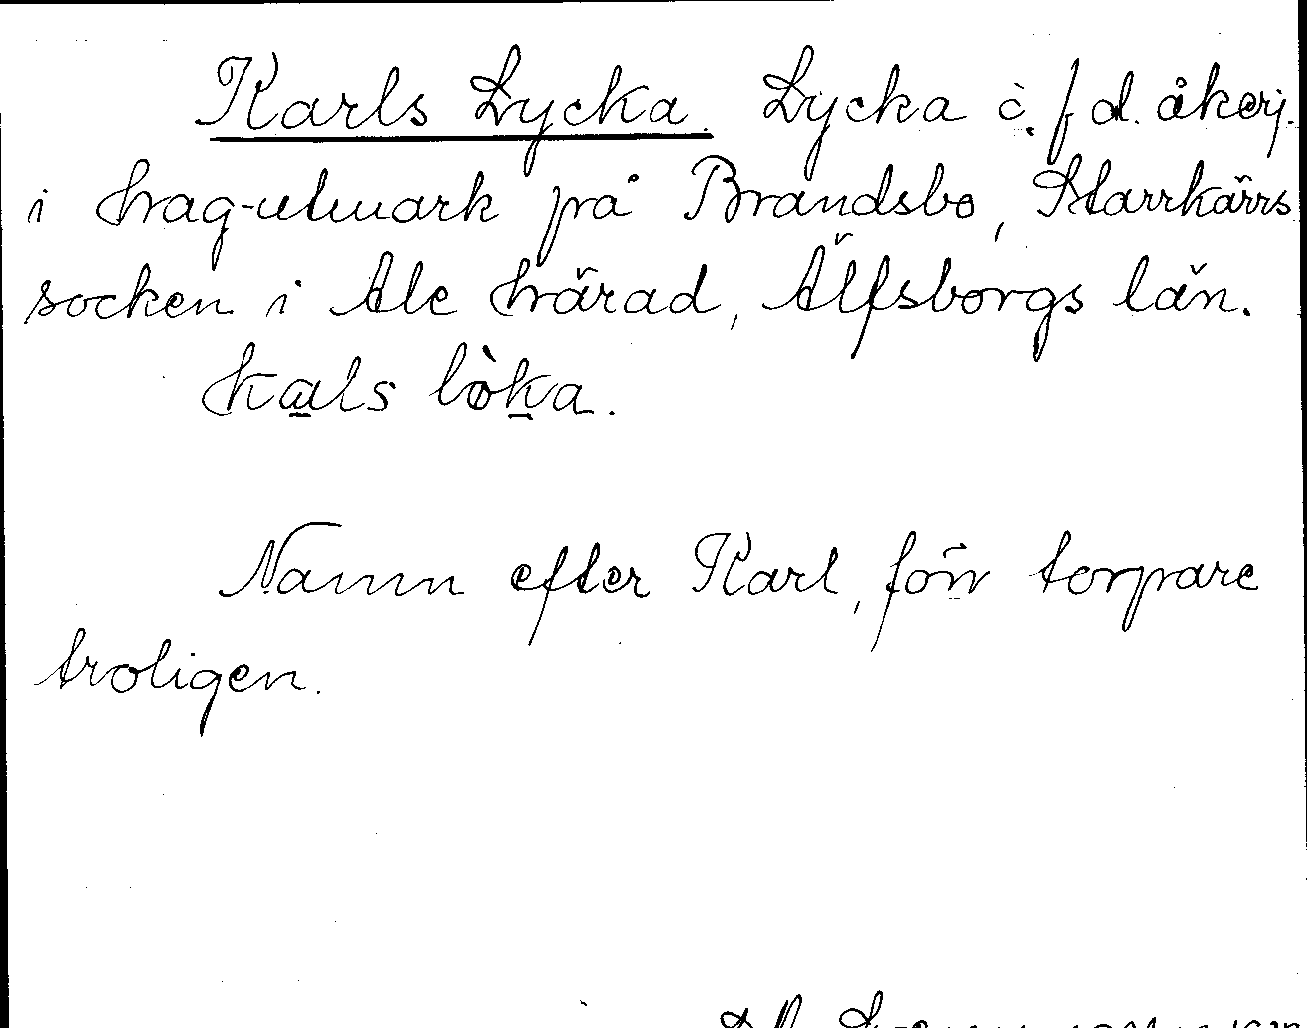 Karls Lycka. Lycka å f d. åkerj.
i hag-utmark på Brandsbo, Starrkärrs
socken i Ale härad, Älfsborgs län.
Kals lòka.
Namn efter Karl, förr torpare
troligen.